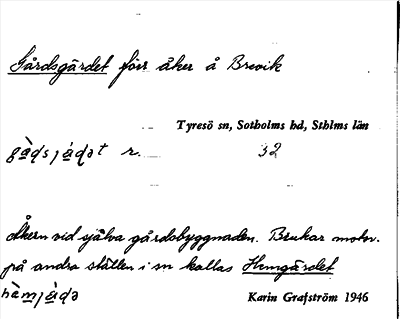 Gårdsgärdet förr åker å Brevik
Tyresö sn, Sotholms hd, Sthlms län
n. 32
Åkern vid själva gårdsbyggnaden. Brukar motsv.
på andra ställen i sn kallas Hemgärdet
Karin Grafström 1946